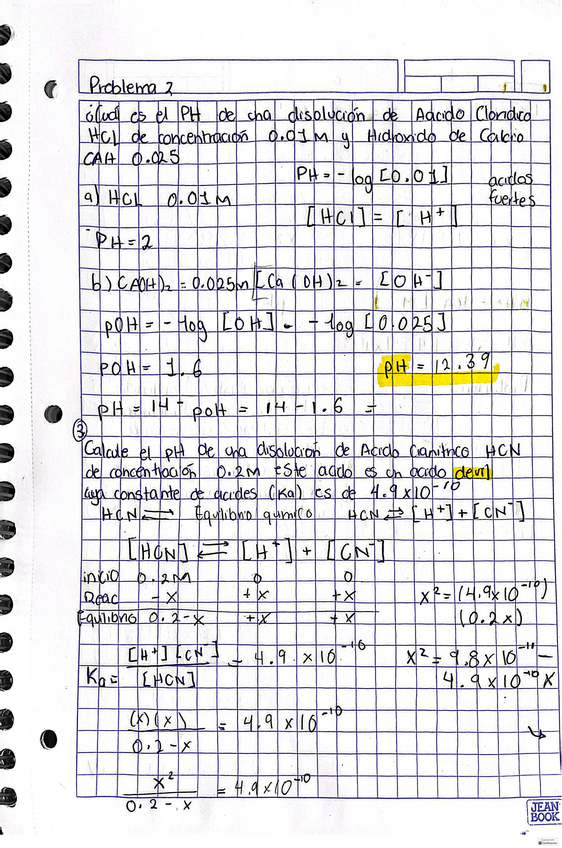 Problema 2
¿Cuál es el PH de una disolución de Aácido Cloridico
HCL de concentración 0.01M y Hidroxido de Calcio
CAH 0.025
PH = -log [0.01]
a) HCL 0.01M
acidos
fuertes
[HCl] = [H⁺]
PH = 2
b) CA(OH)₂ = 0.025M [Ca(OH)₂ = [OH⁻]
pOH = -log [OH] = -log [0.025]
POH = 1.6
pH = 12.39
pH = 14 - pOH = 14 - 1.6 =
③
Calcule el pH de una disolución de Acido Cianitrico HCN
de concentración 0.2M este acido es un acido devil
cuya constante de acides (Ka) es de 4.9x10⁻¹⁰
HCN ⇌ Equilibrio químico HCN ⇌ [H⁺] + [CN⁻]
[HCN] ⇌ [H⁺] + [CN⁻]
inicio 0.2M 0 0
Reac -x +x +x
Equilibrio 0.2-x +x +x
x² = (4.9x10⁻¹⁰)
(0.2x)
Ka = [H⁺][CN⁻] / [HCN] = 4.9 x10⁻¹⁰
x² = 9.8x10⁻¹¹ -
4.9x10⁻¹⁰ x
(x)(x) / 0.2-x = 4.9x10⁻¹⁰
x² / 0.2-x = 4.9x10⁻¹⁰
JEAN
BOOK